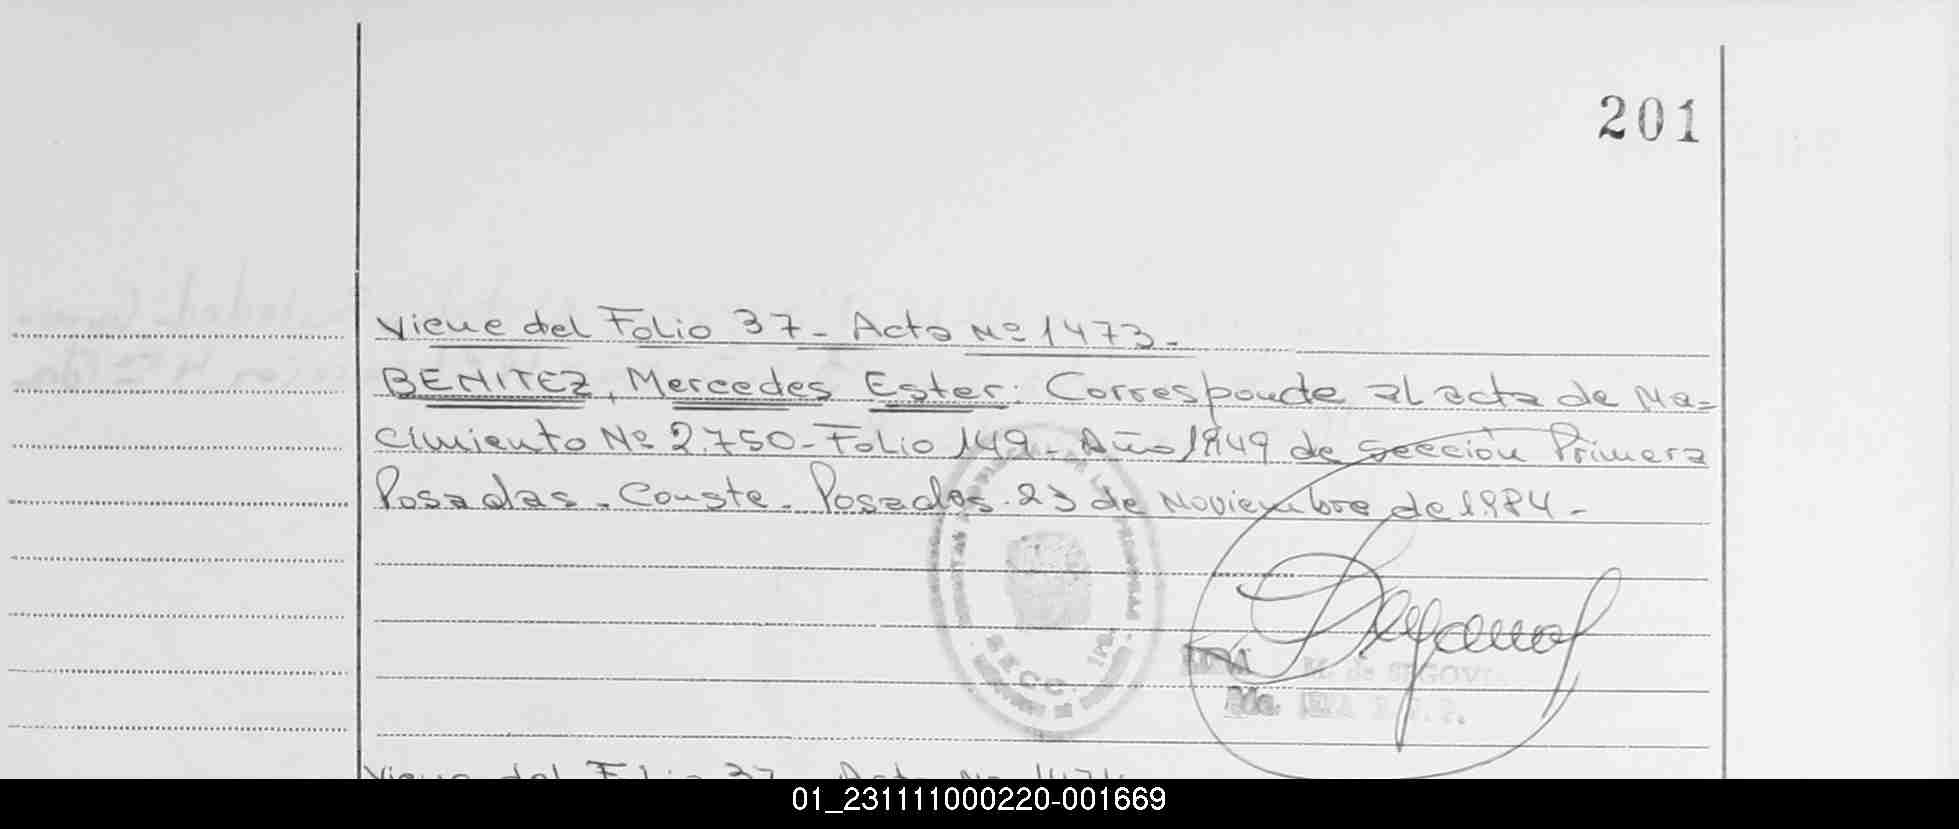 201
Viene del Folio 37 - Acta Nº 1473 -
BENITEZ, Mercedes Ester: Corresponde al acta de Na=
cimiento Nº 2.750 - Folio 149 - Año 1949 de Sección Primera
Posadas. Conste. Posadas. 23 de Noviembre de 1984 -
M. de SEGOVIA
Viene del Folio 37 - Acta Nº 1474
01_231111000220-001669